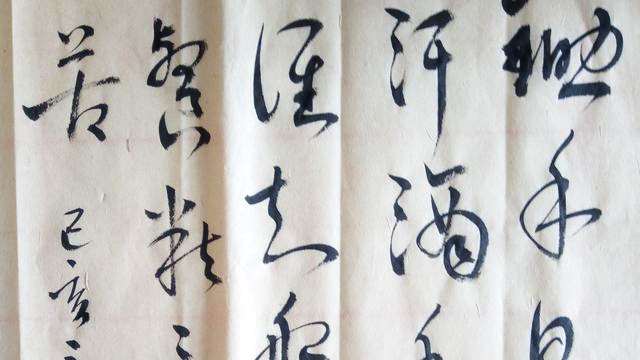 鋤禾日
汗滴禾
誰知盤
餐粒
苦
己亥